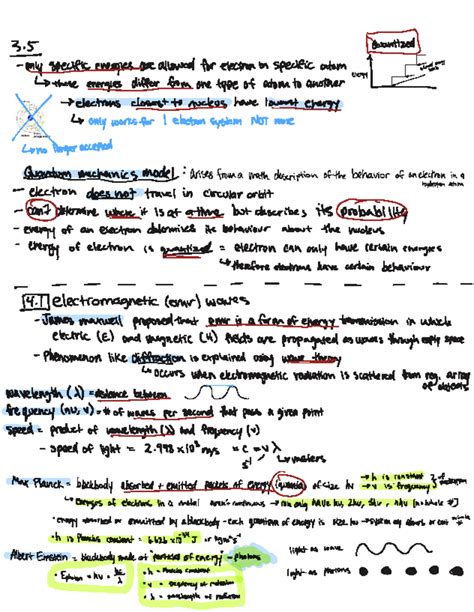 3.5
Quantized
- only specific energies are allowed for electron in specific atom
energy
↳ these energies differ from one type of atom to another
→ electrons closest to nucleus have lowest energy
↳ only works for 1 electron system NOT more
↳ no longer accepted
Quantum mechanics model: Arises from a math description of the behavior of an electron in a hydrogen atom
- electron does not travel in circular orbit
- can't determine where it is at a time but describes its probability
- energy of an electron determines its behaviour about the nucleus
- energy of electron is quantized = electron can only have certain energies
↳ therefore electrons have certain behaviour
4.1 electromagnetic (emr) waves
- James maxwell proposed that emr is a form of energy transmission in which
electric (E) and magnetic (H) fields are propagated as waves through empty space
- Phenomenon like diffraction is explained using wave theory
↳ occurs when electromagnetic radiation is scattered from reg. array of objects
wavelength (λ) = distance between
frequency (nu, ν) = # of waves per second that pass a given point
speed = product of wavelength (λ) and frequency (ν)
- speed of light = 2.998 x 10⁸ m/s = c = ν λ
s⁻¹ ↳ meters
Max Planck = blackbody absorbed + emitted packets of energy (quanta) of size hν → h is constant
→ ν is frequency of
↳ energies of electrons in a model aren't continuous → can only have hν, 2hν, 3hν, nhν (n = whole #)
• energy absorbed or emitted by a blackbody - each quantum of energy is size hν →
• h is Plancks constant = 6.626 x10⁻³⁴ J or kgm²s⁻¹
Albert Einstein = blackbody made of "particles of energy" - photons
light as wave
• Ephoton = hν = hc/λ
• h = Plancks constant
• ν = frequency of radiation
• λ = wavelength of radiation
light as photons